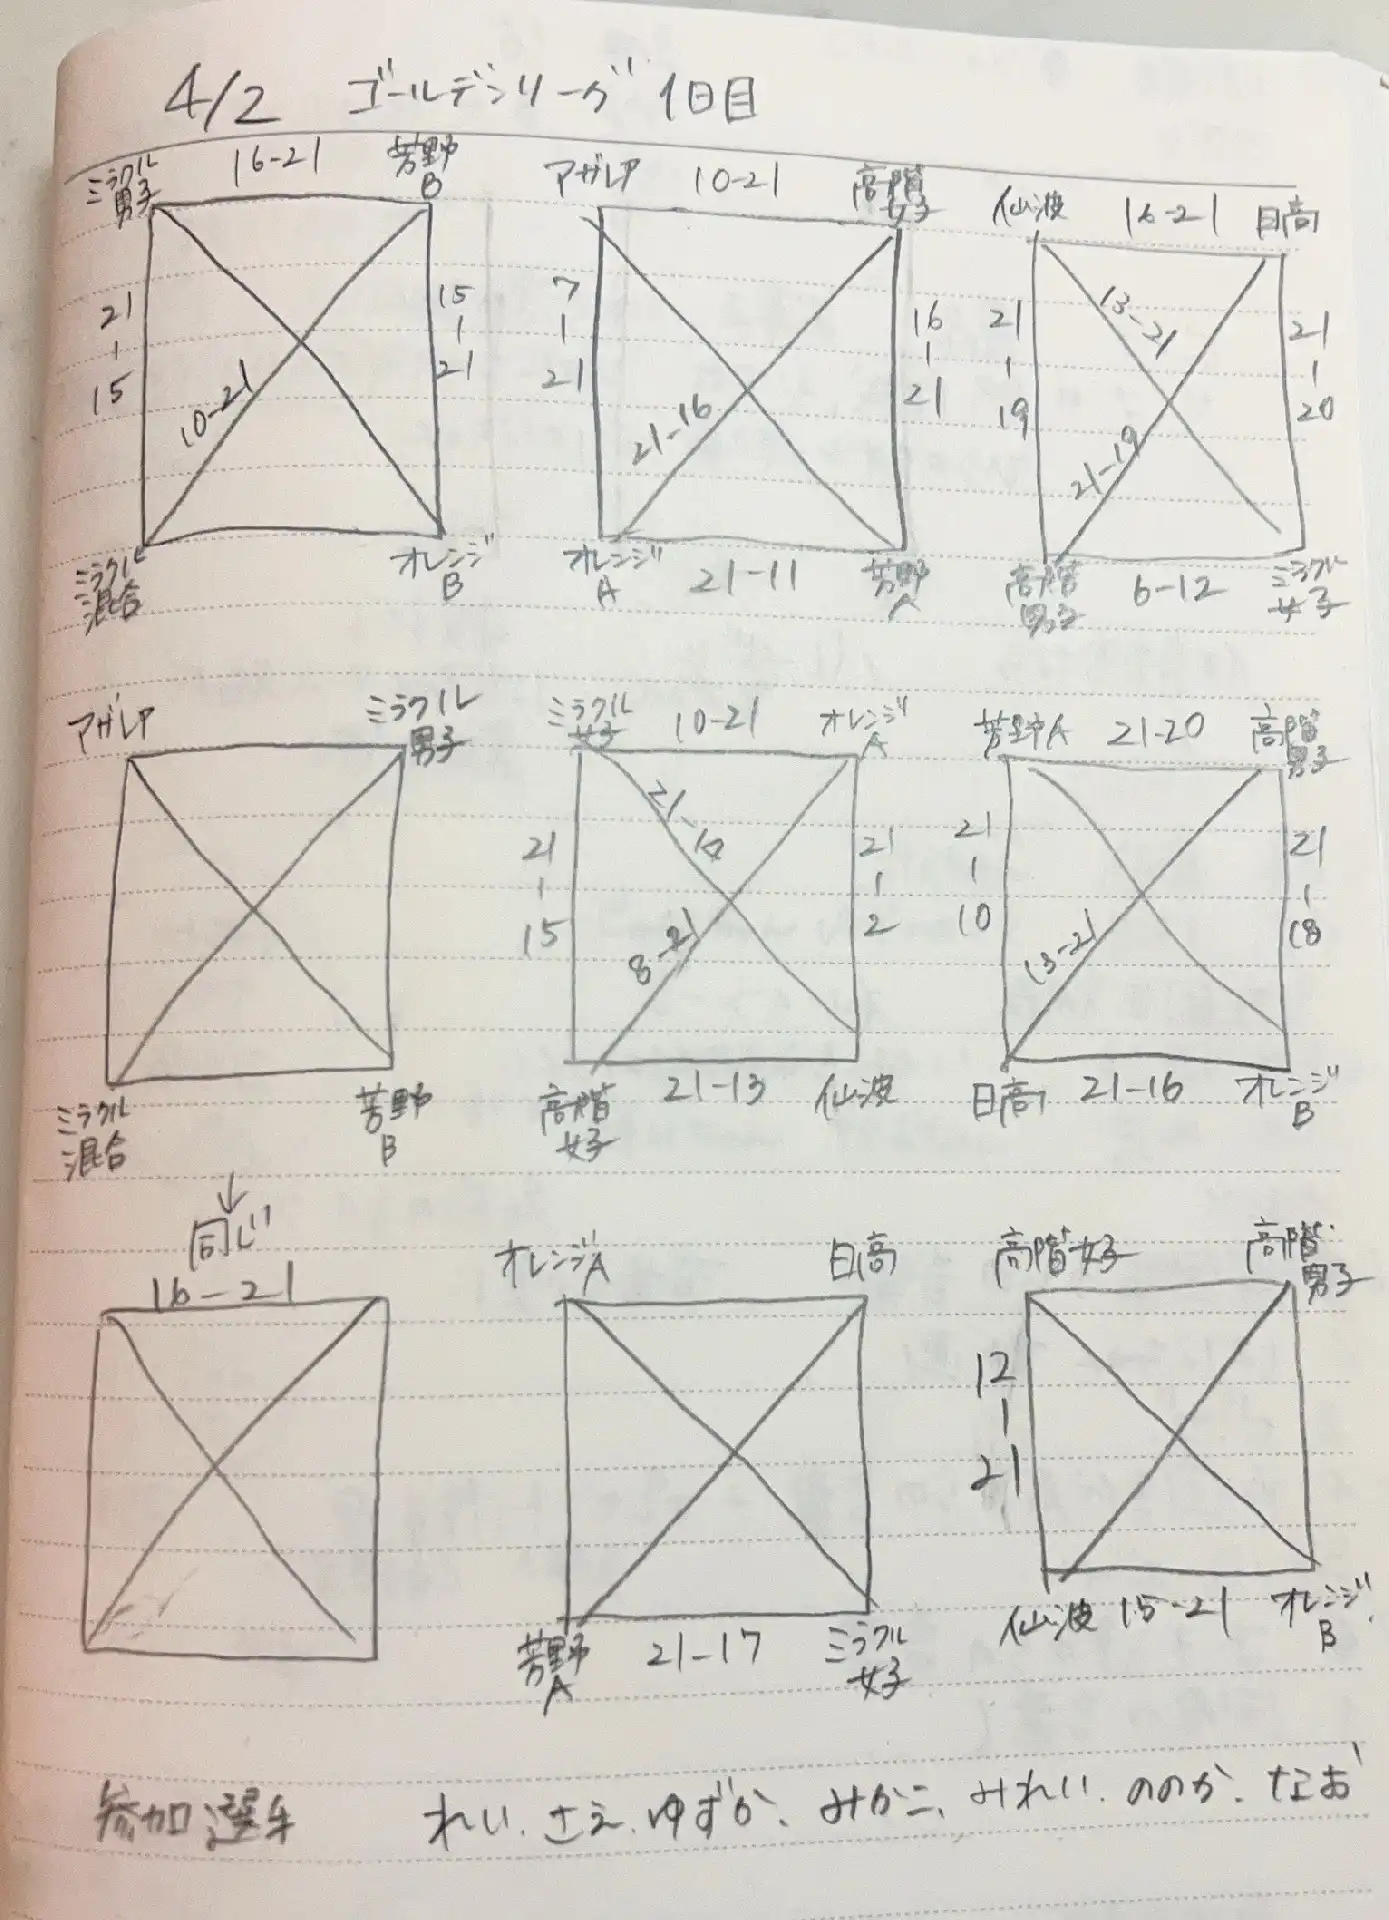 4/2 ゴールデンリーグ 1日目
ミラクル男子 16-21 芳野B
21-15
15-21
10-21
ミラクル混合 オレンジB
アザレア 10-21 高階女子
7-21
16-21
21-16
オレンジA 21-11 芳野A
仙波 16-21 日高
21-19
13-21
21-20
21-19
高階男子 6-12 ミラクル女子
アザレア ミラクル男子
ミラクル混合 芳野B
ミラクル女子 10-21 オレンジA
21-15
21-
21-2
8-21
高階女子 21-13 仙波
芳野A 21-20 高階男子
21-10
21-18
13-21
日高 21-16 オレンジB
↓
同じ
16-21
オレンジA 日高
芳野A 21-17 ミラクル女子
高階女子 高階男子
12-21
仙波 15-21 オレンジB
参加選手 れい、さえ、ゆずか、みかこ、みれい、ののか、なお